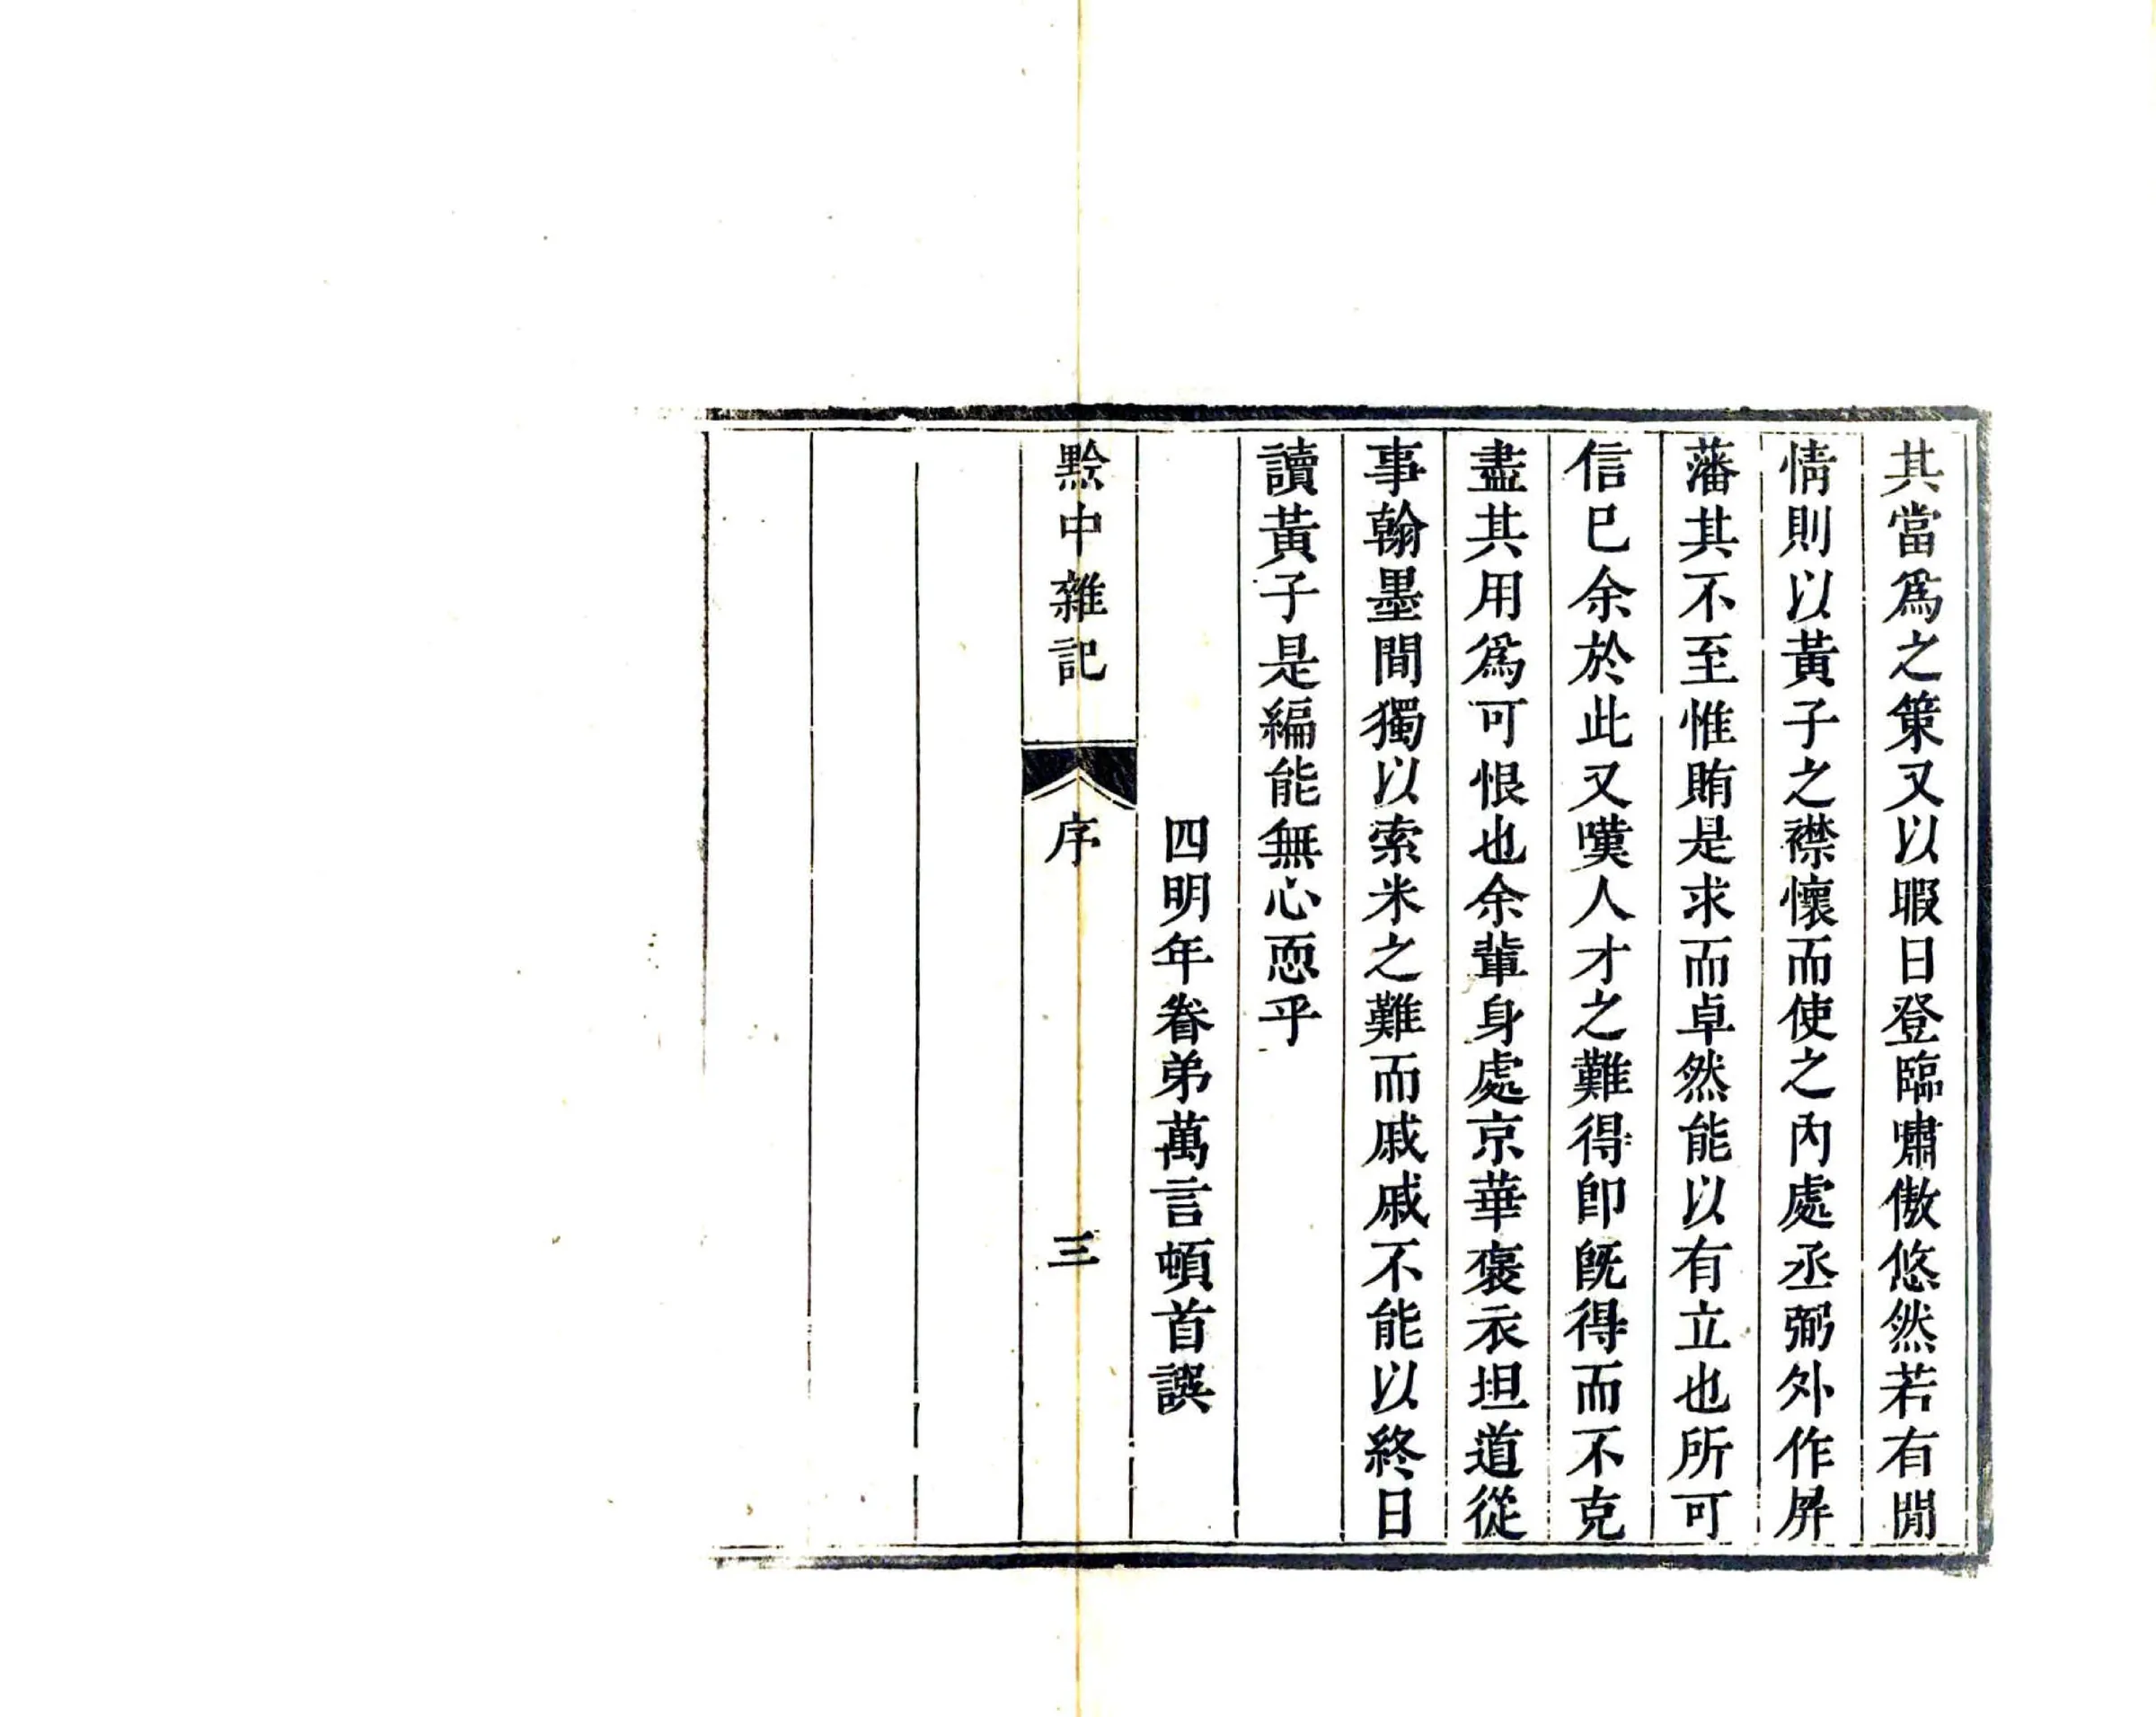 其當爲之策又以暇日登臨嘯傲悠然若有閒
情則以黃子之襟懷而使之內處丞弼外作屏
藩其不至惟賄是求而卓然能以有立也所可
信已余於此又嘆人才之難得卽旣得而不克
盡其用爲可恨也余輩身處京華褒衣坦道從
事翰墨間獨以索米之難而戚戚不能以終日
讀黃子是編能無心恧乎
四明年眷弟萬言頓首譔
黔中雜記
序
三